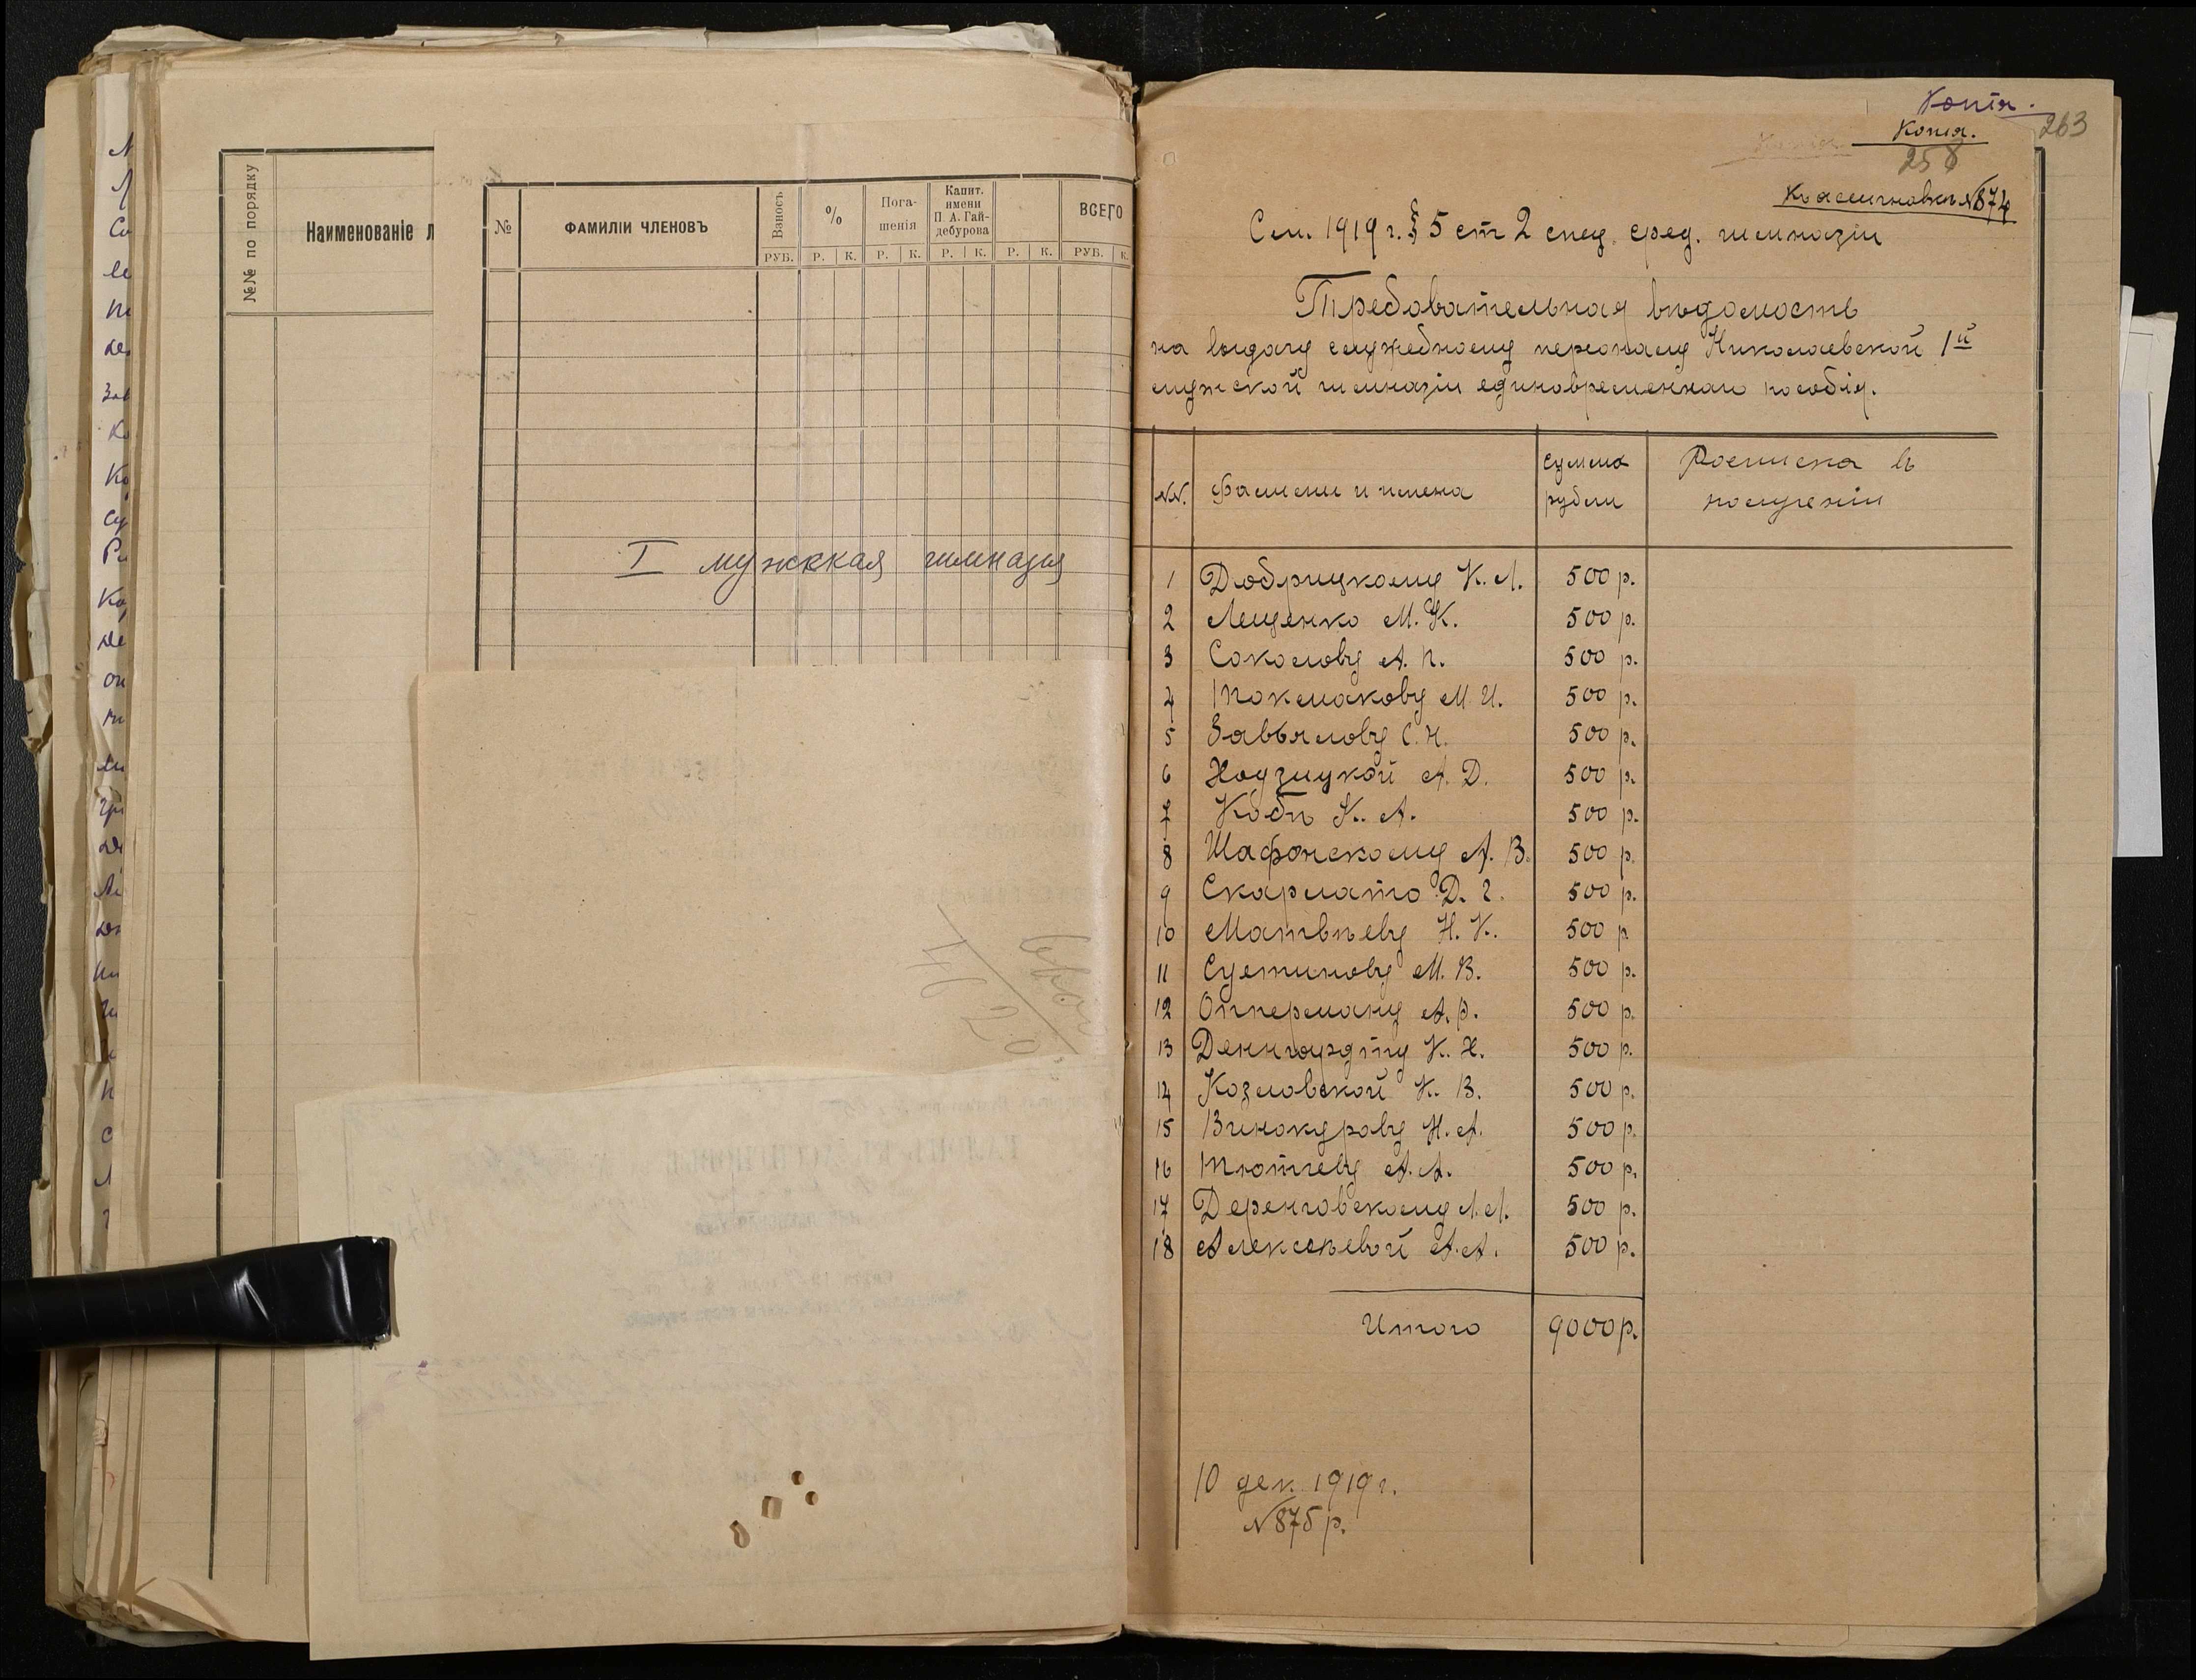 №№ по порядку
Наименованіе л
№
ФАМИЛІИ ЧЛЕНОВЪ
Взносъ
%
Пога-
шенія
Капит.
имени
П. А. Гай-
дебурова
ВСЕГО
РУБ. Р. К. Р. К. Р. К. Р. К. РУБ. К.
I мужская гимназія
Копія.
Копія.
263
258
Къ ассигновкѣ №874
См. 1919 г. § 5 ст 2 спец. сред. гимназіи
Требовательная вѣдомость
на выдачу служебному персоналу Николаевской 1й
мужской гимназіи единовременнаго пособія.
NN. Фамиліи и имена Сумма рубли Росписка въ полученіи
1 Добрицкому К. Л. 500 р.
2 Лещенко М. К. 500 р.
3 Соколову А. П. 500 р.
4 Токмакову М. И. 500 р.
5 Завьялову С. Н. 500 р.
6 Ходзицкой А. Д. 500 р.
7 Кобъ К. А. 500 р.
8 Шафонскому А. В. 500 р.
9 Скарлато Д. Г. 500 р.
10 Матвѣеву Н. К. 500 р
11 Сустинову М. В. 500 р.
12 Опперману А. Р. 500 р.
13 Денгардту К. Х. 500 р.
14 Козловской К. В. 500 р.
15 Винокурову Н. А. 500 р.
16 Тютчеву А. А. 500 р.
17 Деренговскому Л. Л. 500 р.
18 Алексѣевой А. А. 500 р.
Итого 9000 р.
10 дек. 1919 г.
№875 р.